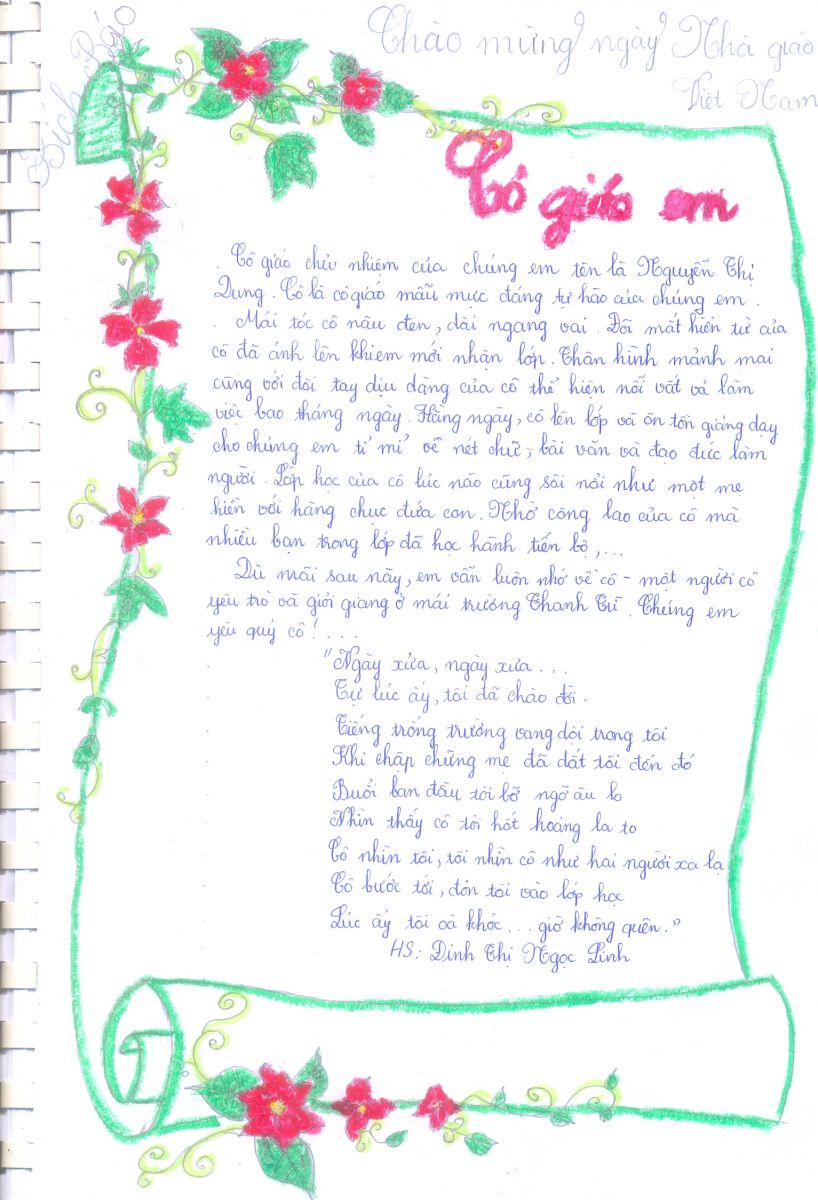 Chào mừng ngày Nhà giáo
Việt Nam
Bích Báo
Cô giáo em
Cô giáo chủ nhiệm của chúng em tên là Nguyễn Thị
Dung. Cô là cô giáo mẫu mực đáng tự hào của chúng em.
Mái tóc cô nâu đen, dài ngang vai. Đôi mắt hiền từ của
cô đã ánh lên khi em mới nhận lớp. Thân hình mảnh mai
cùng với đôi tay dịu dàng của cô thể hiện nỗi vất vả làm
việc bao tháng ngày. Hằng ngày, cô lên lớp và ôn tồn giảng dạy
cho chúng em tỉ mỉ về nét chữ, bài văn và đạo đức làm
người. Lớp học của cô lúc nào cũng sôi nổi như một mẹ
hiền với hàng chục đứa con. Nhờ công lao của cô mà
nhiều bạn trong lớp đã học hành tiến bộ,...
Dù mãi sau này, em vẫn luôn nhớ về cô - một người cô
yêu trò và giỏi giang ở mái trường Thanh Trì. Chúng em
yêu quý cô!....
"Ngày xửa, ngày xưa...
Tự lúc ấy, tôi đã chào đời.
Tiếng trống trường vang dội trong tôi
Khi chập chững mẹ đã dắt tôi đến đó
Buổi ban đầu tôi bỡ ngỡ âu lo
Nhìn thấy cô tôi hốt hoảng la to
Cô nhìn tôi, tôi nhìn cô như hai người xa lạ
Cô bước tới, đón tôi vào lớp học
Lúc ấy tôi oà khóc... giờ không quên."
HS: Đinh Thị Ngọc Linh